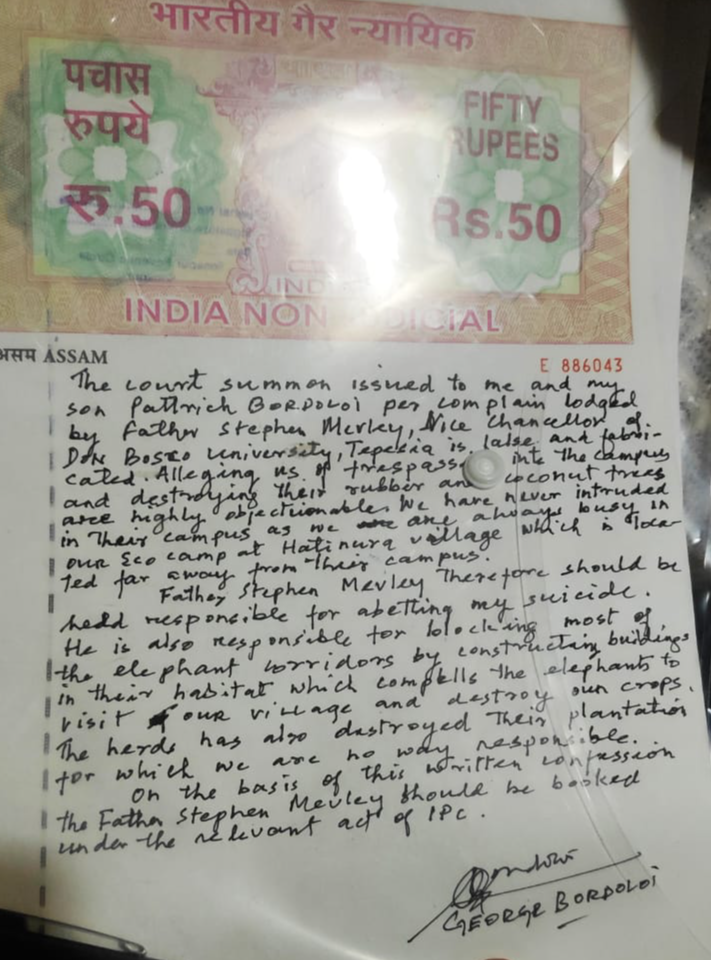 भारतीय गैर न्यायिक
पचास
रुपये
रु.50
FIFTY
RUPEES
Rs.50
INDIA NON JUDICIAL
असम ASSAM
E 886043
The court summon issued to me and my
son Pattrich BORDOLOI per complain lodged
by Father Stephen Mevley, Vice Chancellor of
DON BOSCO University, Tepesia is false and fabri-
cated. Alleging us of trespass into the campus
and destroying their rubber and coconut trees
are highly objectionable. We have never intruded
in their campus as we are always busy in
our Eco camp at Hatinura village which is loca-
ted far away from their campus.
Father Stephen Mevley Therefore should be
held responsible for abetting my suicide.
He is also responsible for blocking most of
the elephant corridors by constructing buildings
in their habitat which compells the elephants to
visit our village and destroy our crops.
The herds has also destroyed their plantation
for which we are no way responsible.
On the basis of this written confession
the Father Stephen Mevley should be booked
under the relevant act of IPC.
GEORGE BORDOLOI